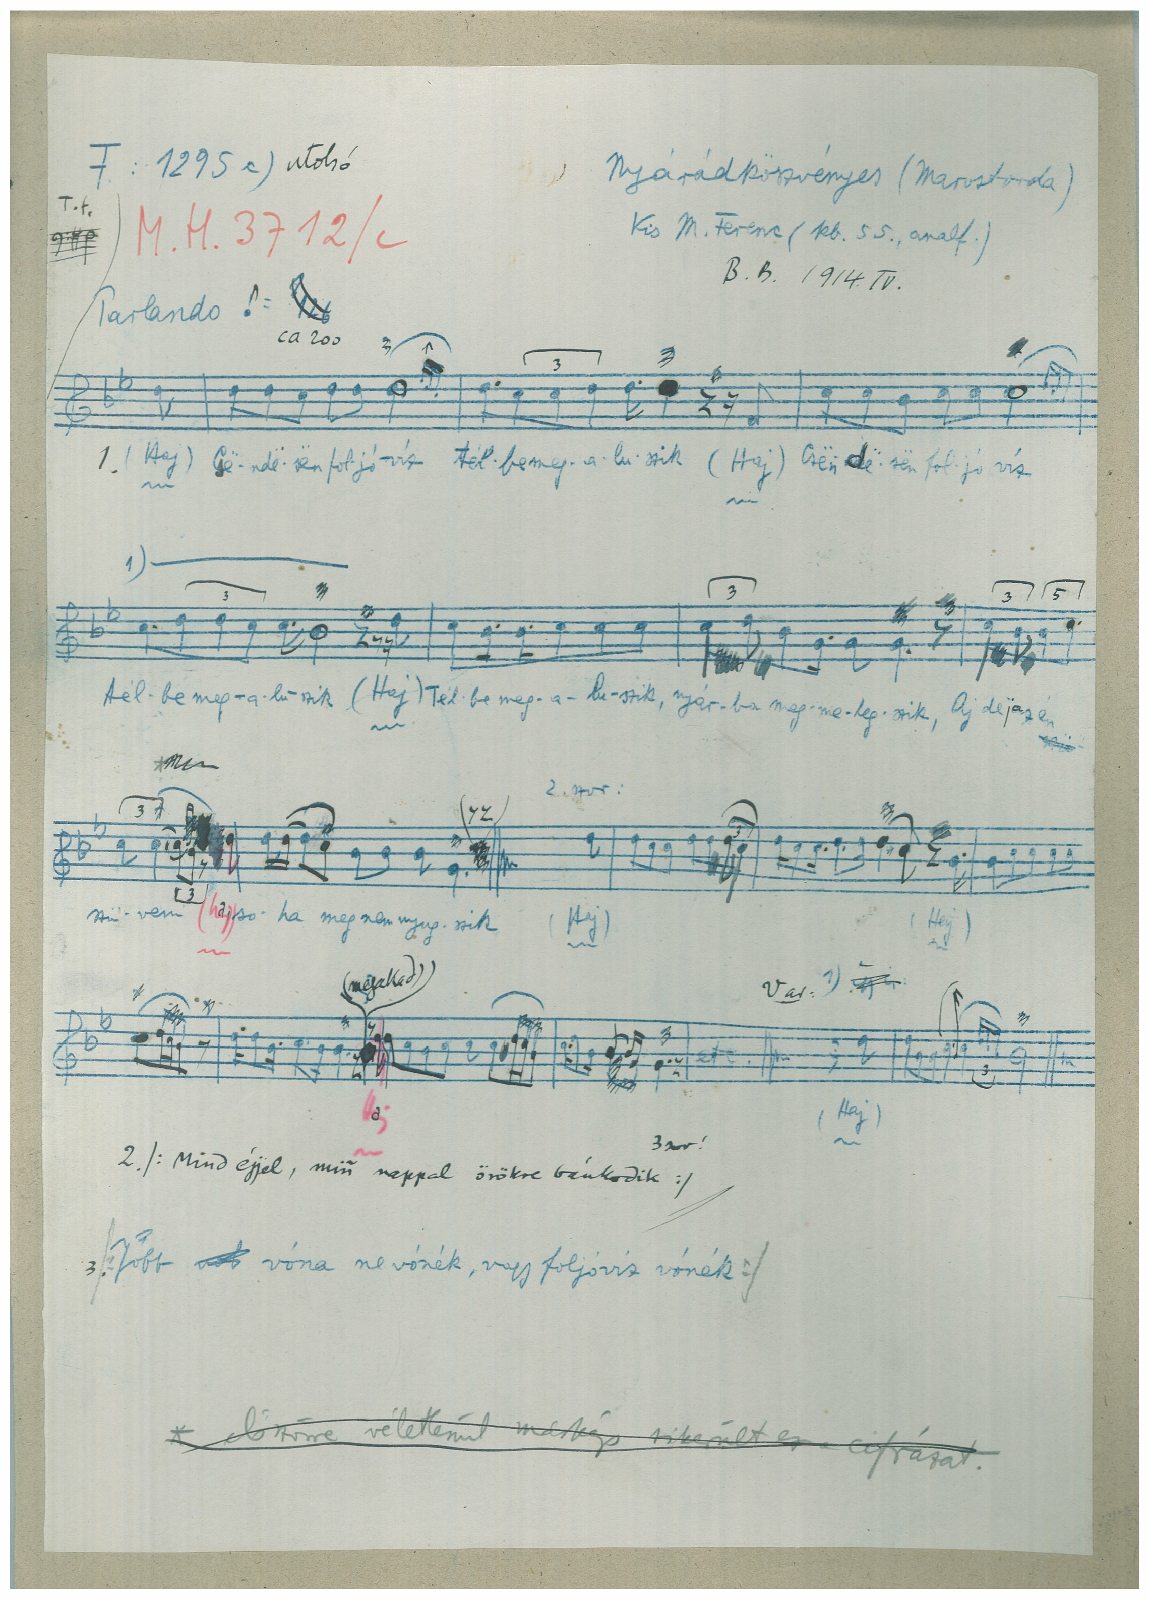 F: 1295 c) utolsó
Nyárádköszvényes (Marostorda)
T.f.
M.H. 3712/c
Kis M. Ferenc (kb. 55., analf.)
B.B. 1914. IV.
Parlando ♪ =
ca 200
3
3
3
1. (Haj) Csë-ndë-sën fol-jó víz tél-be meg-a-lu-szik (Haj) Csën dë-sën fol-jó víz
1)
3
3
3
5
tél-be meg-a-lu-szik (Haj) Tél-be meg-a-lu-szik, nyár-ba meg-me-leg-szik, Aj de jaz én
2. str:
3
3
3
szü-vem (haj) so-ha meg nem nyug-szik (Haj) (Hej)
(megakad)
Var: 1)
3
etc.
haj
(Haj)
3 str!
2. /: Mind éjjel, min nappal örökre bánkodik :/
3. /: Jobb vóna ne vónék, vagy foljóvíz vónék :/
* Először véletlenül máskép sikerült ez a cifrázat.